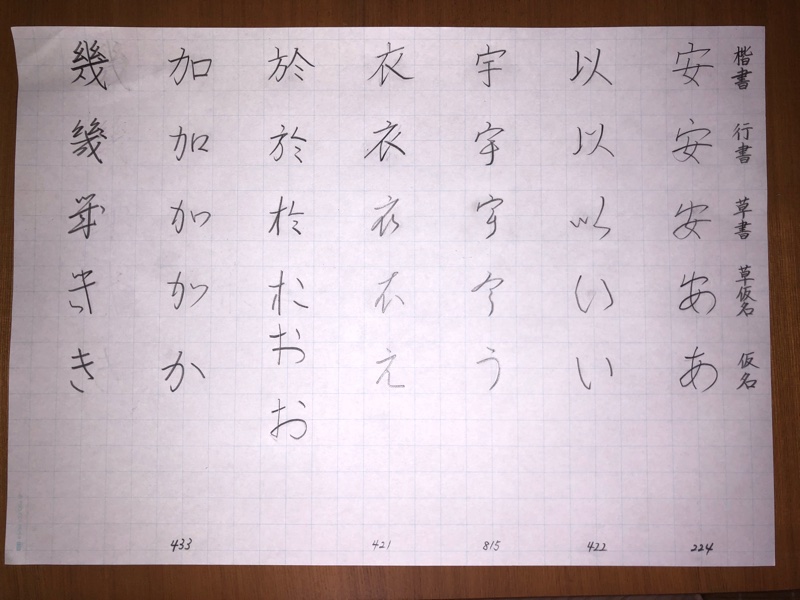 楷書 行書 草書 草仮名 仮名
安 安 安 あ あ
以 以 以 い い
宇 宇 宇 う う
衣 衣 衣 え え
於 於 於 お お お
加 加 加 か か
幾 幾 幾 き き
433 421 815 422 224